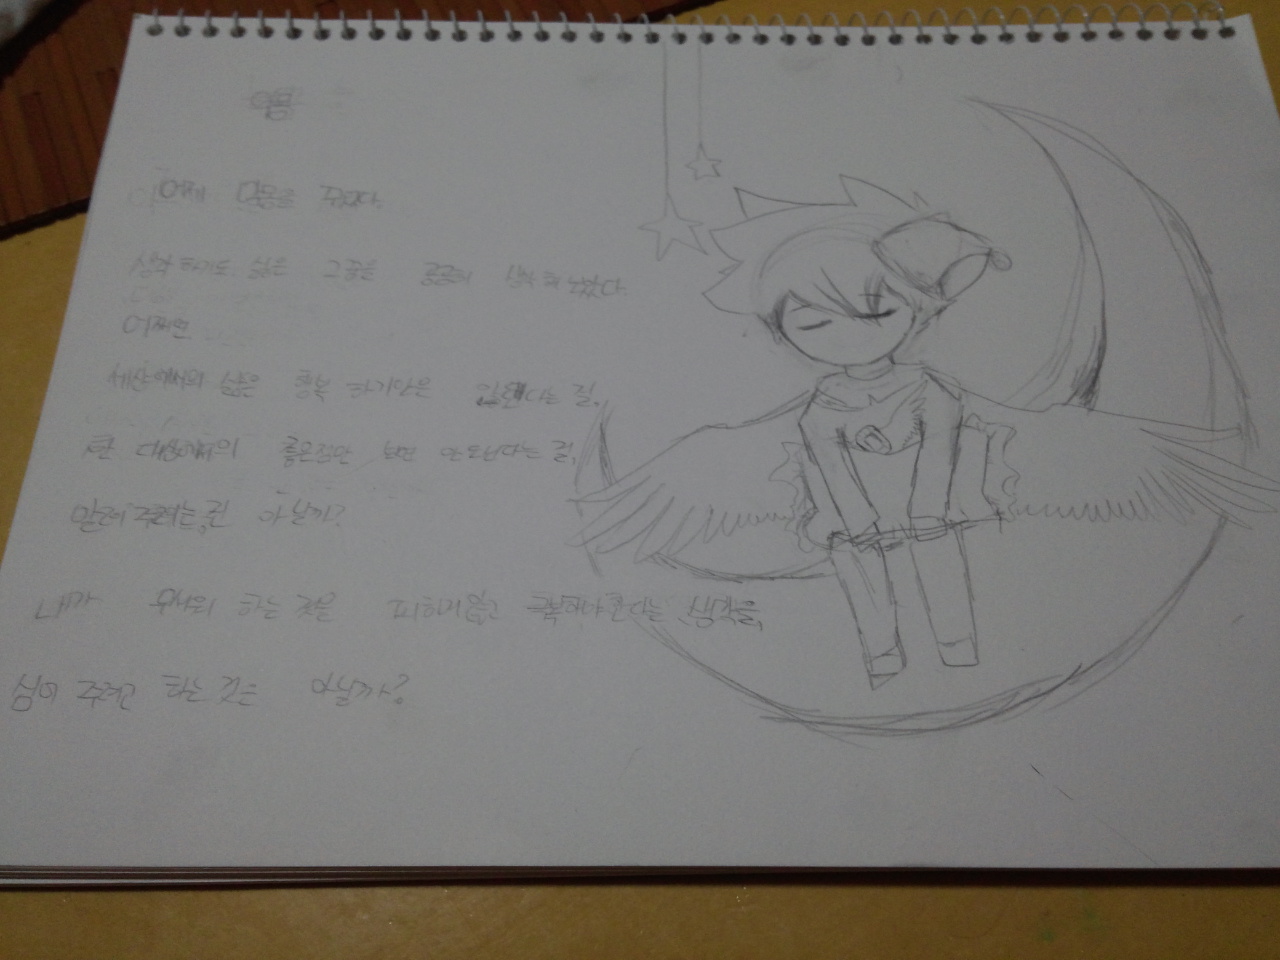 악몽
어제 악몽을 꾸었다.
생각 하기도 싫은 그 꿈을 곰곰히 생각 해 보았다.
어쩌면
세상에서의 삶은 행복 하기만은 않는다는 걸,
한 대상에서의 좋은점만 보면 안 된다는 걸,
말려 주려는 건 아닐까?
내가 무서워 하는 것을 피하지 않고 극복해야 한다는 생각을,
심어 주려고 하는 것은 아닐까?